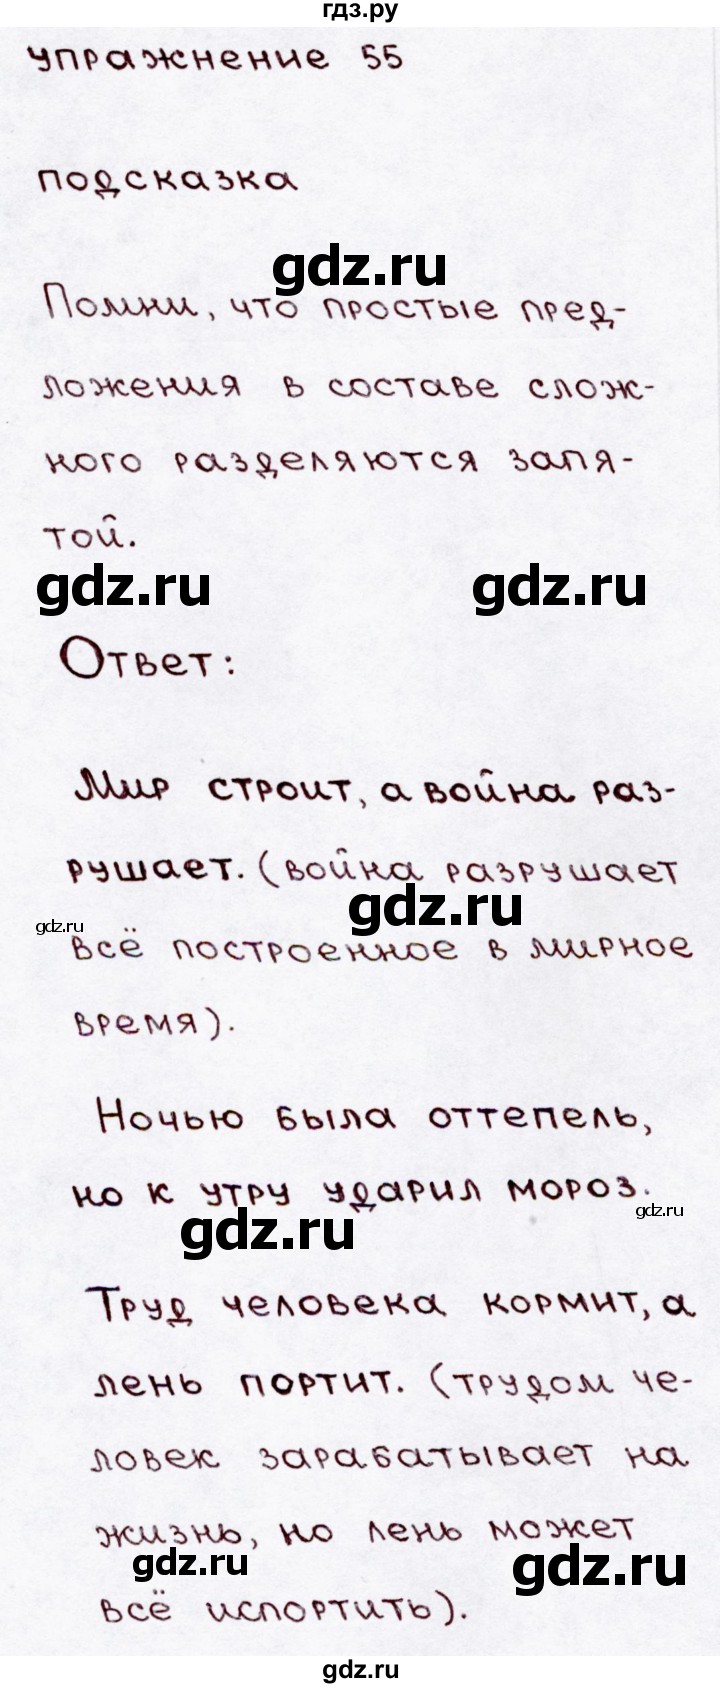 гдз.ру
упражнение 55
подсказка
gdz.ru
Помни, что простые пред-
ложения в составе слож-
ного разделяются запя-
той.
gdz.ru gdz.ru
Ответ:
Мир строит, а война раз-
рушает. (война разрушает
gdz.ru gdz.ru
всё построенное в мирное
время).
Ночью была оттепель,
но к утру ударил мороз.
gdz.ru gdz.ru
Труд человека кормит, а
лень портит. (трудом че-
ловек зарабатывает на
жизнь, но лень может
gdz.ru gdz.ru
всё испортить).
gdz.ru